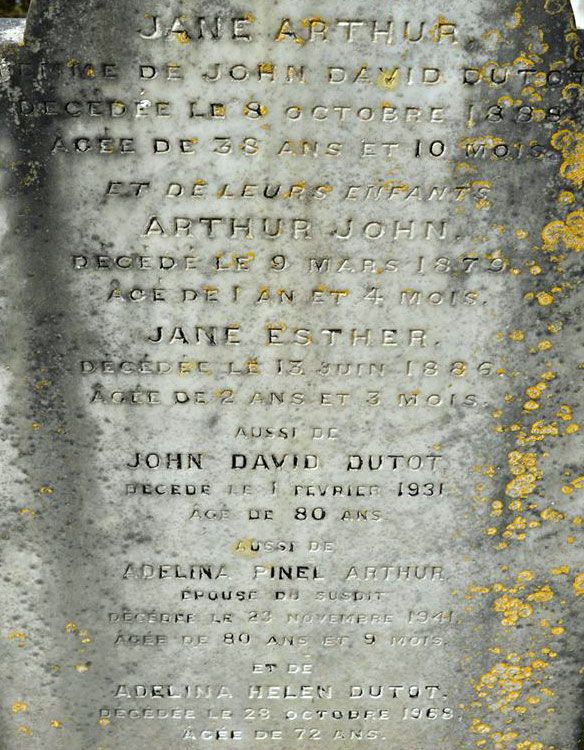 JANE ARTHUR,
FEMME DE JOHN DAVID DUTOT
DÉCÉDÉE LE 8 OCTOBRE 1888
ÂGÉE DE 38 ANS ET 10 MOIS.
ET DE LEURS ENFANTS
ARTHUR JOHN.
DÉCÉDÉ LE 9 MARS 1879
ÂGÉ DE 1 AN ET 4 MOIS.
JANE ESTHER.
DÉCÉDÉE LE 13 JUIN 1886.
ÂGÉE DE 2 ANS ET 3 MOIS.
AUSSI DE
JOHN DAVID DUTOT
DÉCÉDÉ LE 1 FÉVRIER 1931
ÂGÉ DE 80 ANS
AUSSI DE
ADELINA PINEL ARTHUR
ÉPOUSE DU SUSDIT
DÉCÉDÉE LE 23 NOVEMBRE 1941,
ÂGÉE DE 80 ANS ET 9 MOIS.
ET DE
ADELINA HELEN DUTOT.
DÉCÉDÉE LE 28 OCTOBRE 1968,
ÂGÉE DE 72 ANS.